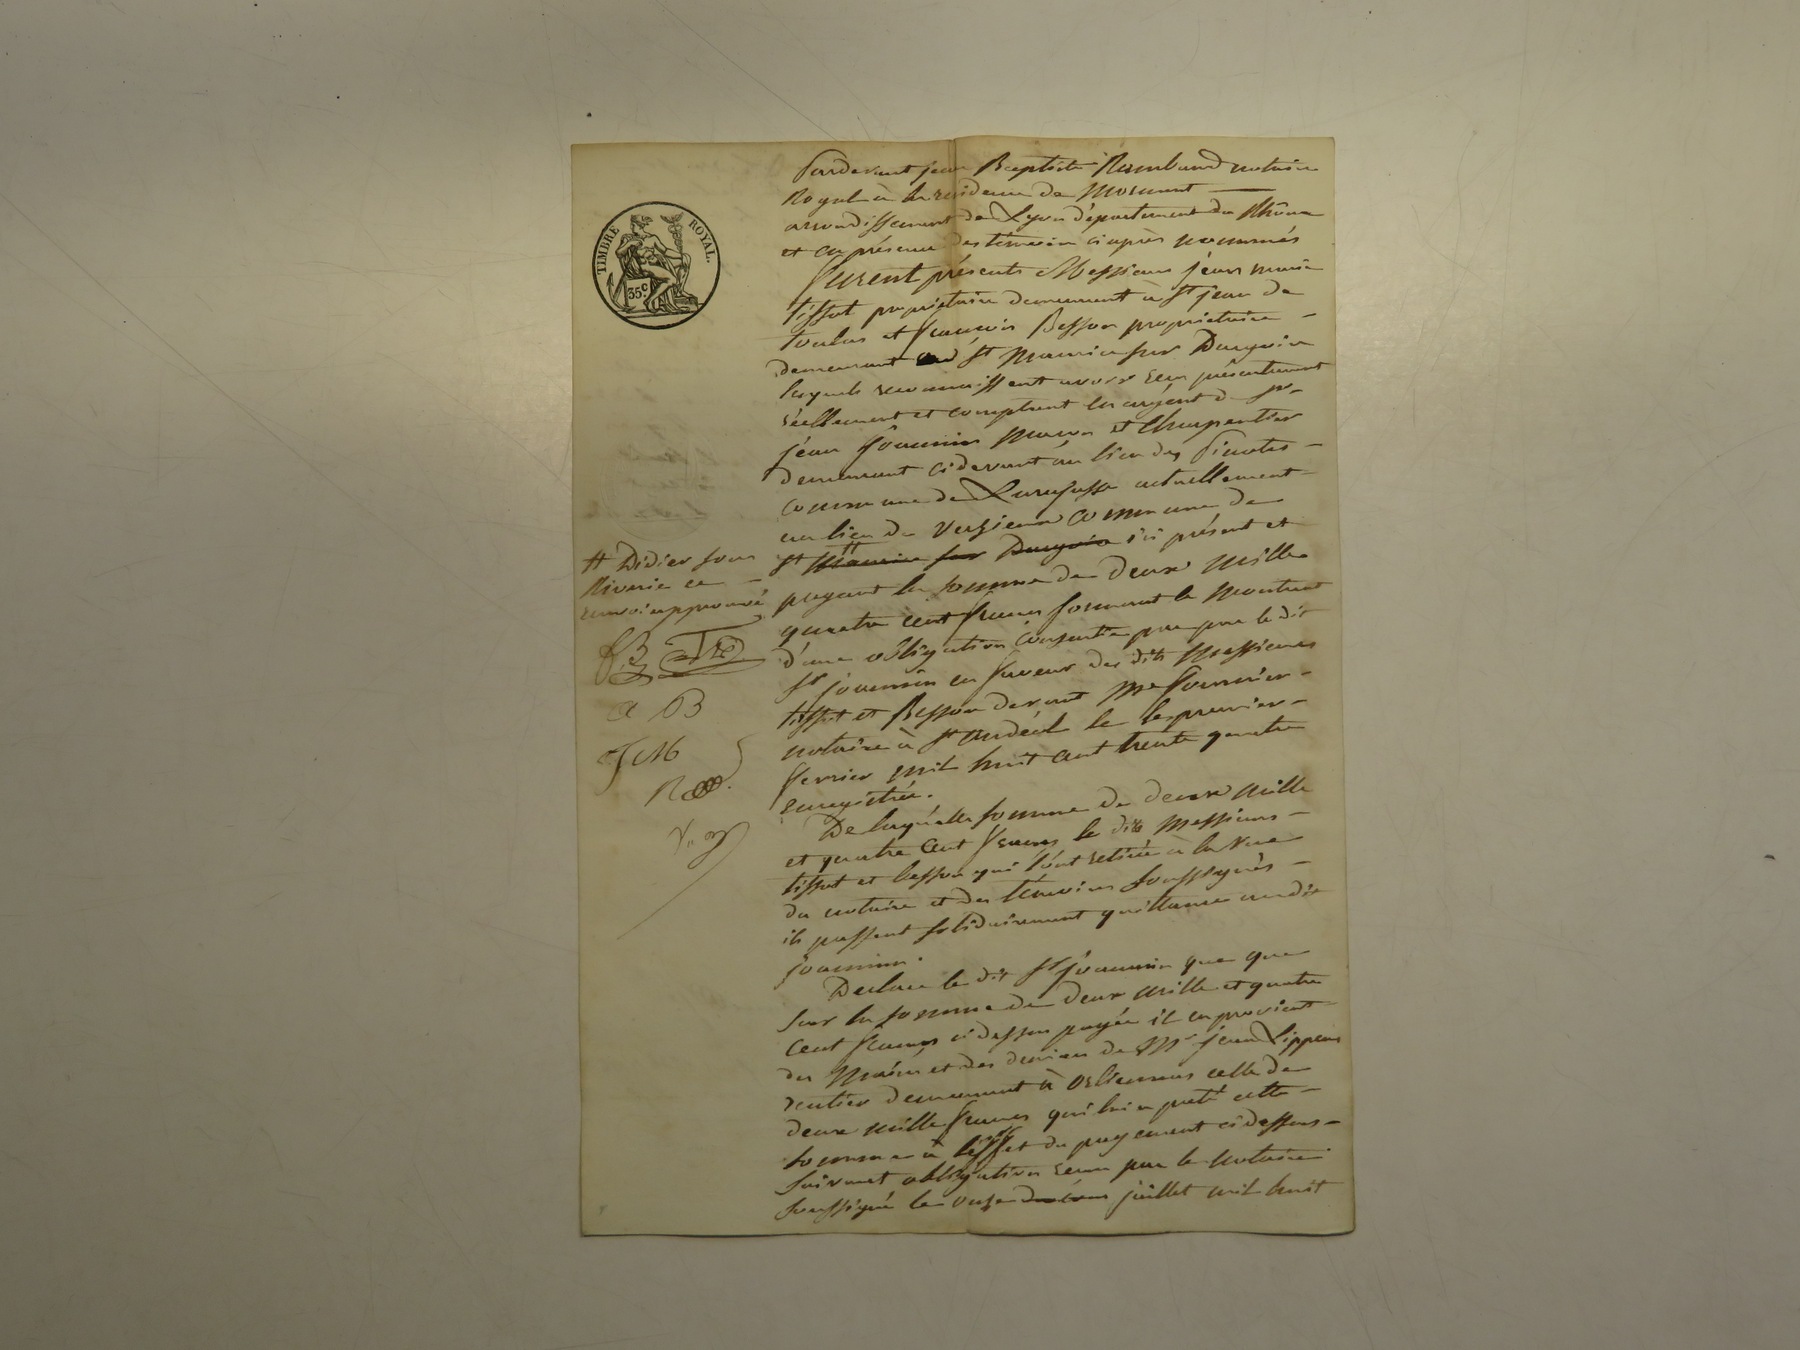 TIMBRE ROYAL.
35 c
Pardevant jean Baptiste Rambaud notaire
Royal à la residence de Mornant
arrondissement de Lyon département du Rhône
et en présence des témoins ciaprès nommés
furent présents Messieurs jean marie
tissot propriétaire demeurant à St jean de
toulas et francois Besson propriétaire
demeurant St Maurice sur Dargoire
lesquels reconnaissent avoir recu présentement
réellement et comptant en argent de Sr
jean joannin maçon et Charpentier
demeurant cidevant au lieu des
commune de Larajasse actuellement
au lieu de commune de
St Maurice sur Dargoire ici présent et
# Didier sous
Riverie ce
renvoi approuvé
payant la somme de deux mille
quatre cent francs formant le montant
d'une obligation consentie par le dit
Sr joannin en faveur des dits Messieurs
tissot et Besson devant Me fournier
notaire à St Andéol le premier
fevrier mil huit cent trente quatre
enregistrée.
f B
a B
J M
R
De laquelle somme de deux mille
et quatre cent francs le dits Messieurs
tissot et besson qui l'ont retirée à la vue
du notaire et des témoins soussignés
ils passent solidairement quittance audit
joannin.
Declare le dit Sr joannin que que
sur la somme de deux mille et quatre
cent francs cidessus payée il en provient
des mains et des deniers de Mr jean Lippens
rentier demeurant à Orlienas celle de
deux mille francs qui lui a preté cette
somme à l'effet du payement cidessus
suivant obligation recue par le notaire
soussigné le onze juillet mil huit